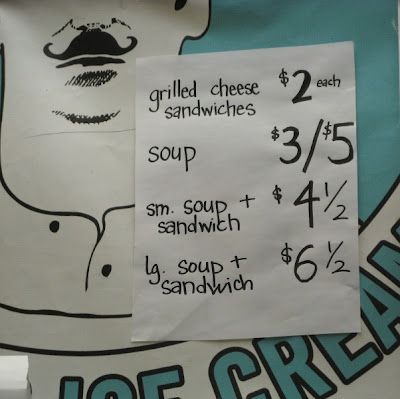 grilled cheese $2 each
sandwiches
soup $3/$5
sm. soup + $4 1/2
sandwich
lg. soup + $6 1/2
sandwich
ICE CREAM